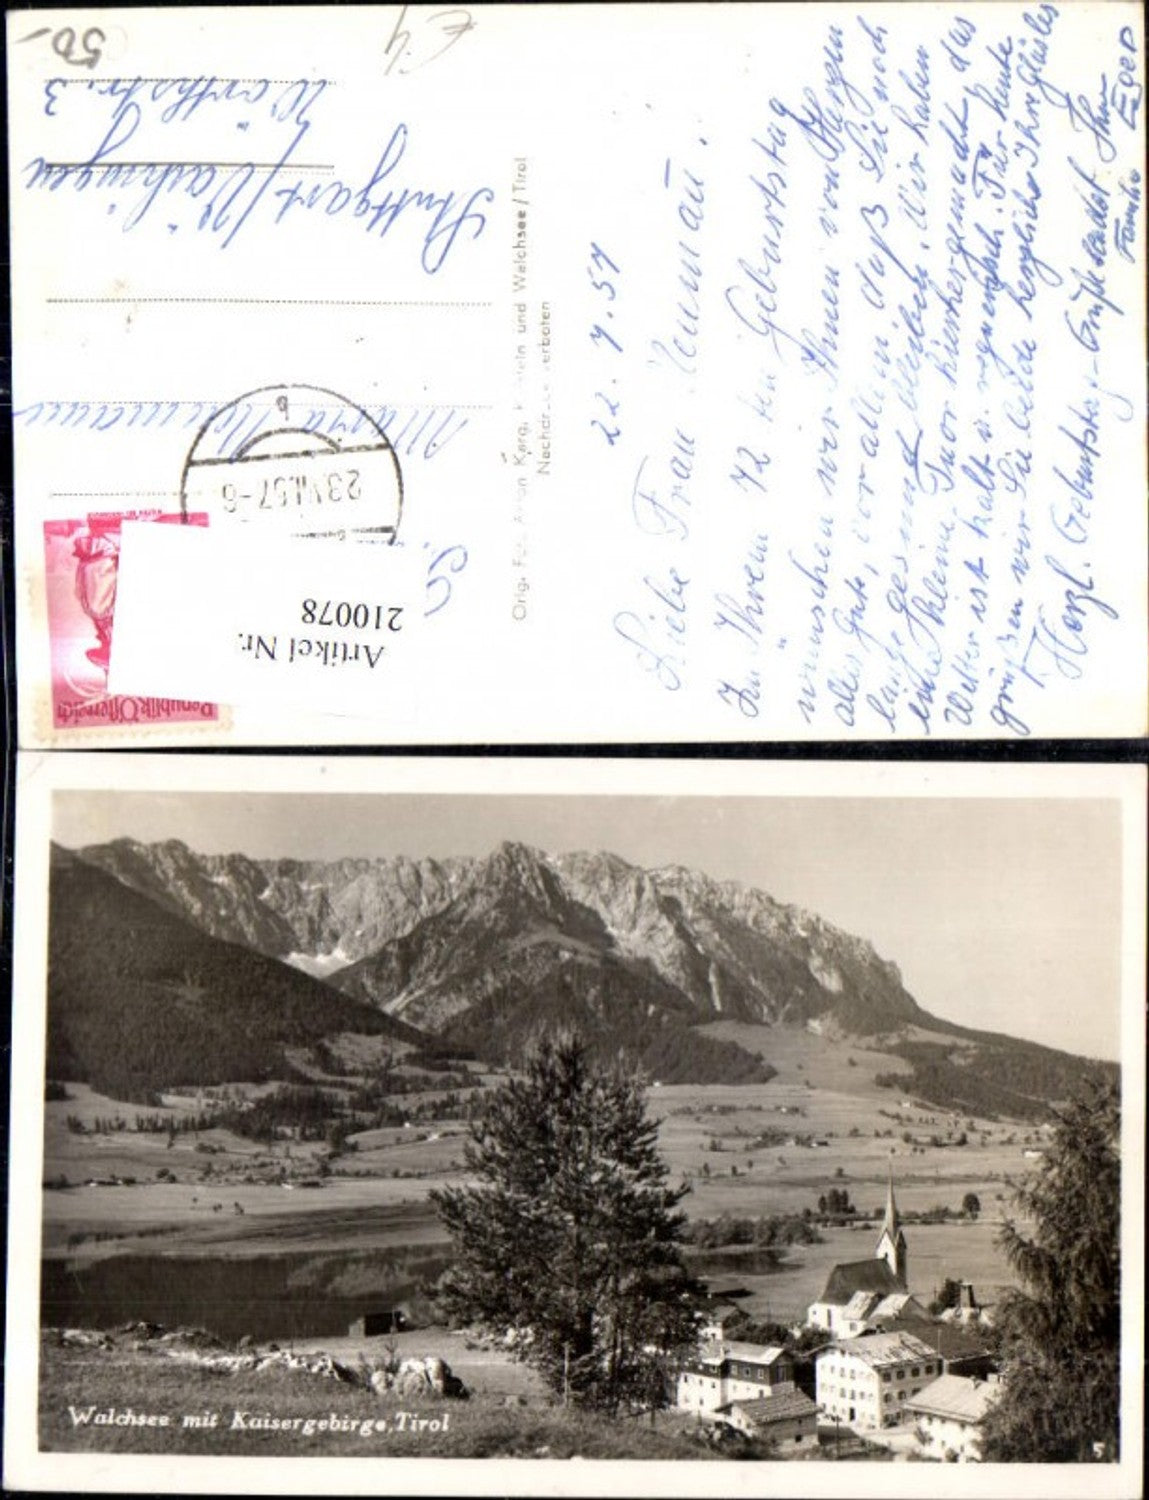 22. 7. 57
Liebe Frau Neumau!
Zu Ihrem 72 ten Geburtstag
wünschen wir Ihnen von Herzen
alles Gute, vor allem daß Sie noch
lange gesund bleiben. Wir haben
eine kleine Tour hierher gemacht, das
Wetter ist kalt u. regnerisch. Für heute
grüßen wir Sie beide herzlichst Ihre
Herzl. Geburtstags-Grüße sendet Ihnen
Familie Eger
Orig. Fot. Anton Karg, K stein und Walchsee/Tirol
Nachdruck verboten
Stuttgart/Vaihingen
3
50.-
€ 4
b
23.VII.57-6
Republik Österreich
Artikel Nr.
210078
Walchsee mit Kaisergebirge, Tirol
5